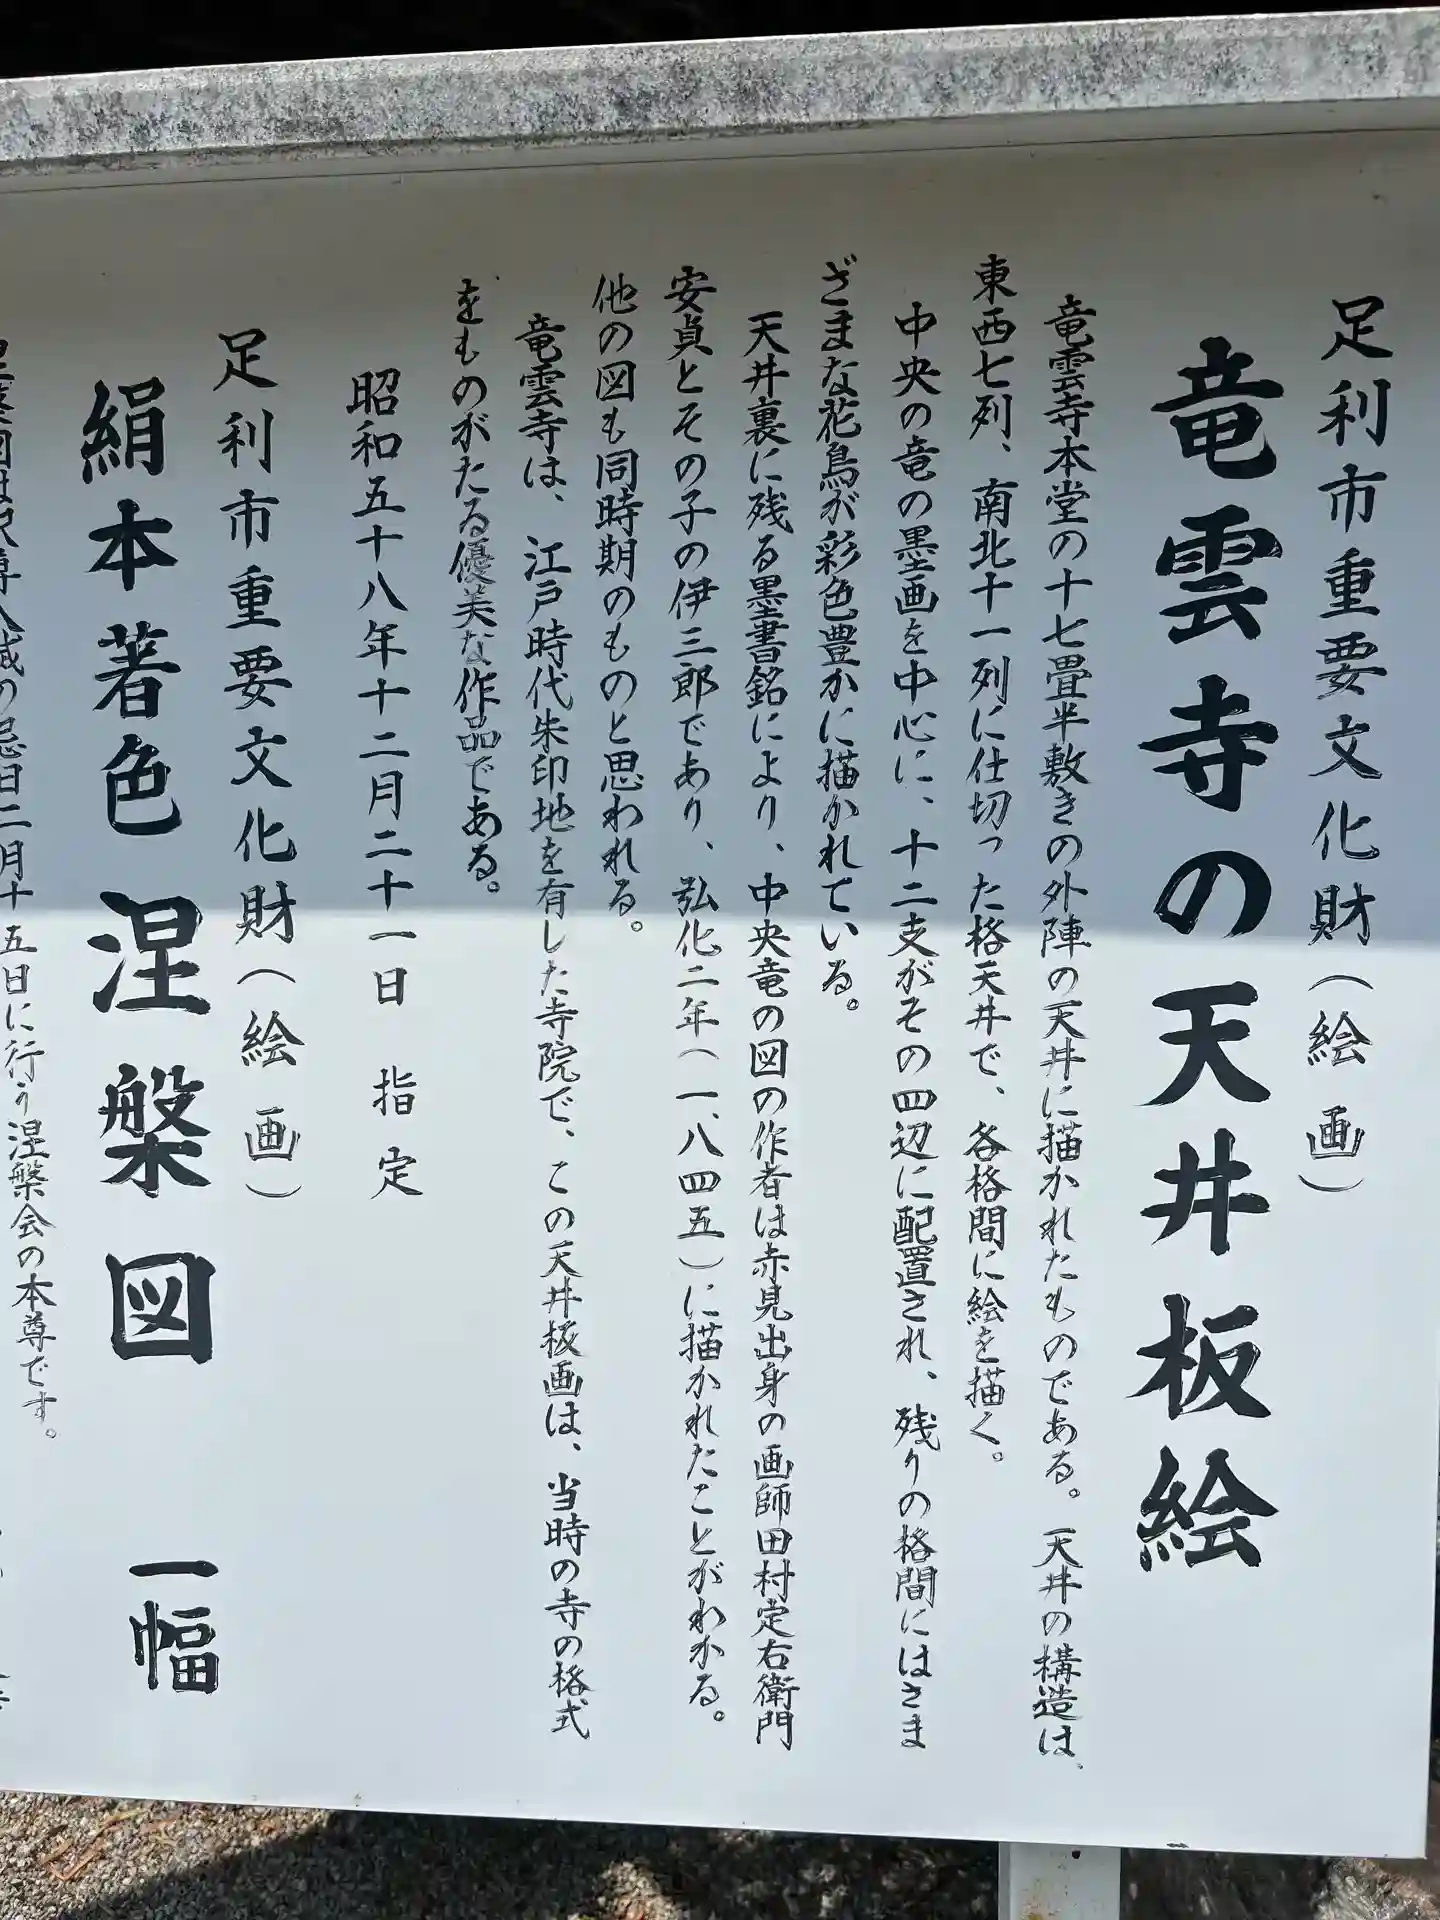 足利市重要文化財（絵画）
竜雲寺の天井板絵
竜雲寺本堂の十七畳半敷きの外陣の天井に描かれたものである。天井の構造は、
東西七列、南北十一列に仕切った格天井で、各格間に絵を描く。
中央の竜の墨画を中心に、十二支がその四辺に配置され、残りの格間にはさま
ざまな花鳥が彩色豊かに描かれている。
天井裏に残る墨書銘により、中央竜の図の作者は赤見出身の画師田村定右衛門
安貞とその子の伊三郎であり、弘化二年（一八四五）に描かれたことがわかる。
他の図も同時期のものと思われる。
竜雲寺は、江戸時代朱印地を有した寺院で、この天井板画は、当時の寺の格式
をものがたる優美な作品である。
昭和五十八年十二月二十一日 指定
足利市重要文化財（絵画）
絹本著色 涅槃図 一幅
涅槃図は釈尊入滅の忌日二月十五日に行う涅槃会の本尊です。